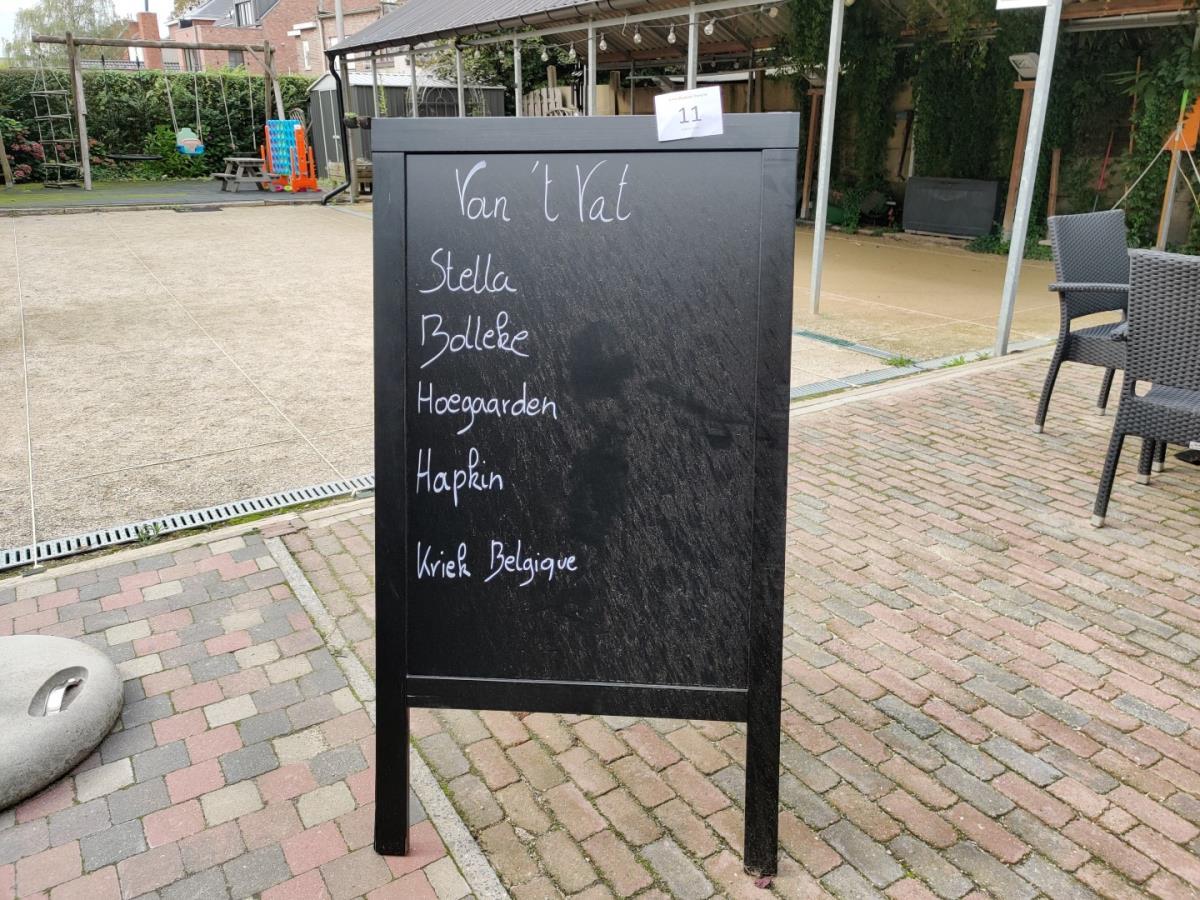 11
Van 't Vat
Stella
Bolleke
Hoegaarden
Hapkin
Kriek Belgique